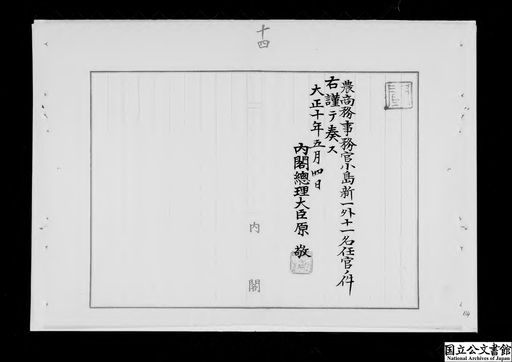 十四
農商務事務官小島新一外十一名任官ノ件
右謹テ奏ス
大正十年五月四日
内閣總理大臣原敬
内閣
国立公文書館
National Archives of Japan